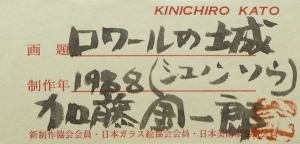 KINICHIRO KATO
画題 ロワールの城
制作年 1988 (シュノンソウ)
加藤金一郎
新制作協会会員・日本ガラス絵協会会員・日本美術家連盟会員